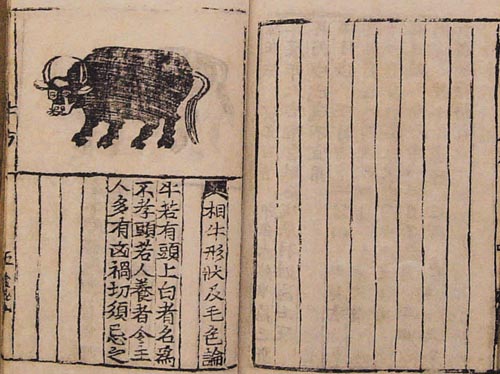 相牛形狀及毛色論
牛若有頭上白者名爲
不孝頭若人養者令主
人多有凶禍切須忌之